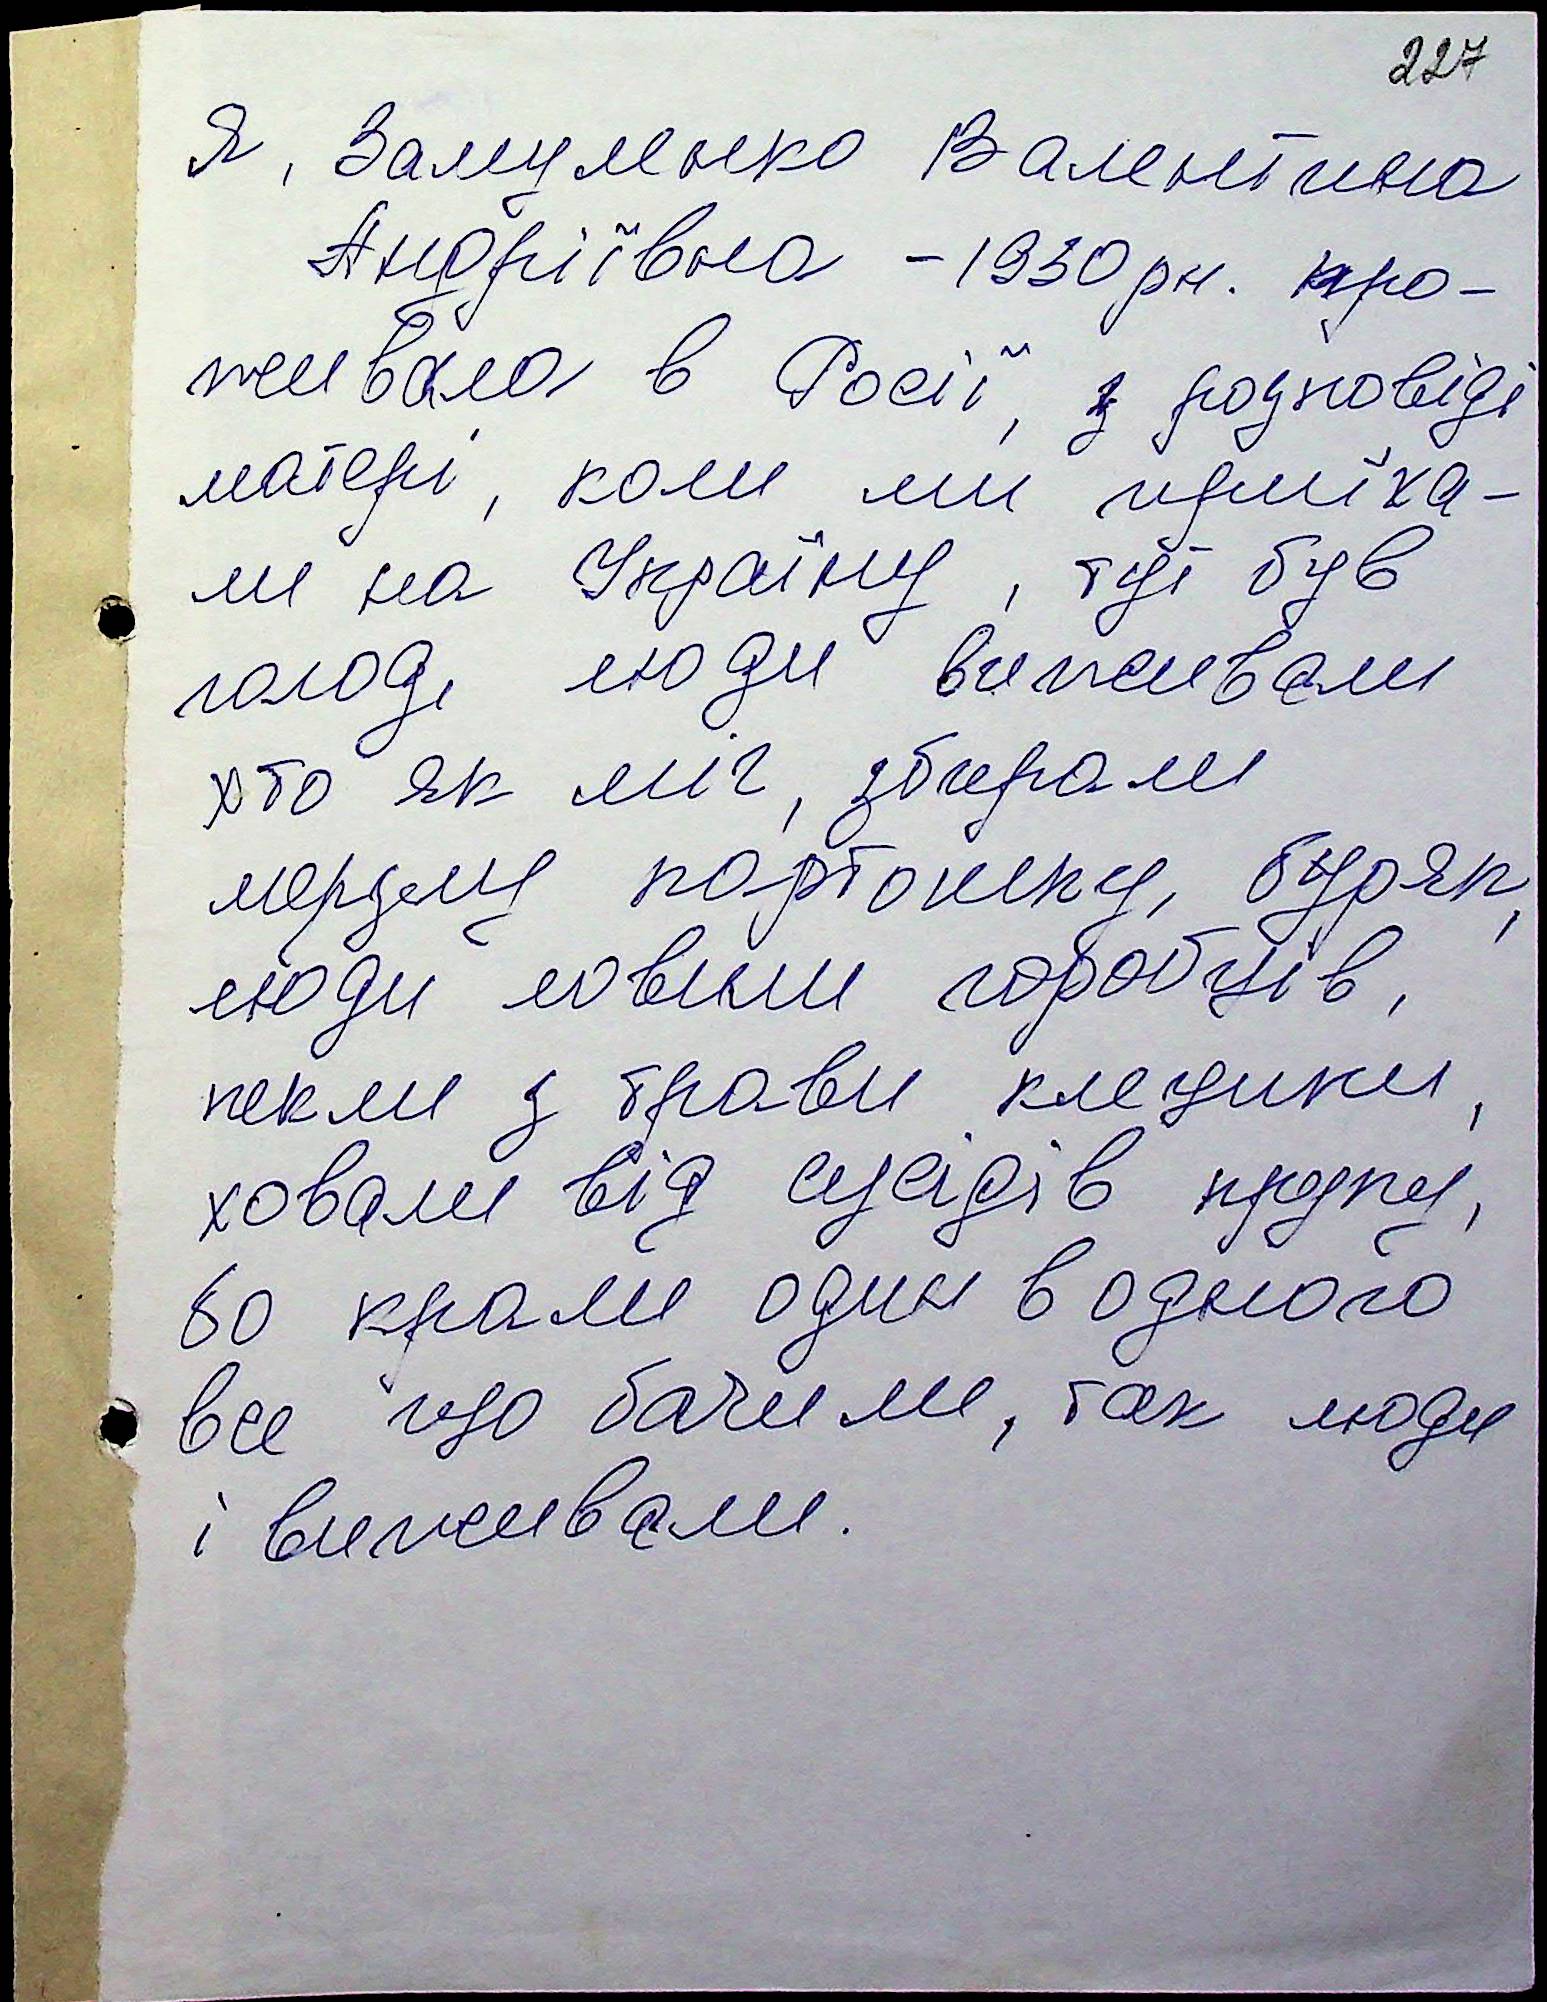 227
Я, Замуленко Валентина
Андріївна - 1930 рн. про-
живала в Росії, з розповіді
матері, коли ми приїха-
ли на Україну, тут був
голод, люди виживали
хто як міг, збирали
мерзлу картошку, буряк,
люди ловили горобців,
пекли з трави клецики,
ховали від сусідів крупу,
бо крали один в одного
все що бачили, так люди
і виживали.